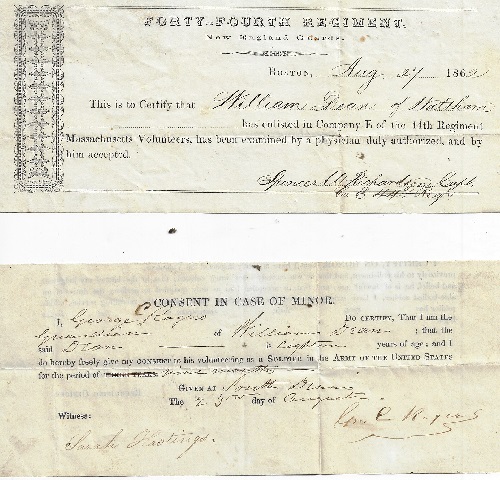 FORTY-FOURTH REGIMENT.
New England Guards.
Boston, Aug 27 1862
This is to Certify that William Dean of Waltham
has enlisted in Company E of the 44th Regiment
Massachusetts Volunteers, has been examined by a physician duly authorized, and by
him accepted.
Spencer W Richardson Capt.
Co E 44th Regt
CONSENT IN CASE OF MINOR.
I, George C Rogers Do certify, That I am the
Guardian of William Dean ; that the
said Dean is years of age: and I
do hereby freely give my consent to his volunteering as a Soldier in the Army of the United States
for the period of three years nine months
Given at South
The day of August
Witness: Geo C Rogers
Sarah Hastings.